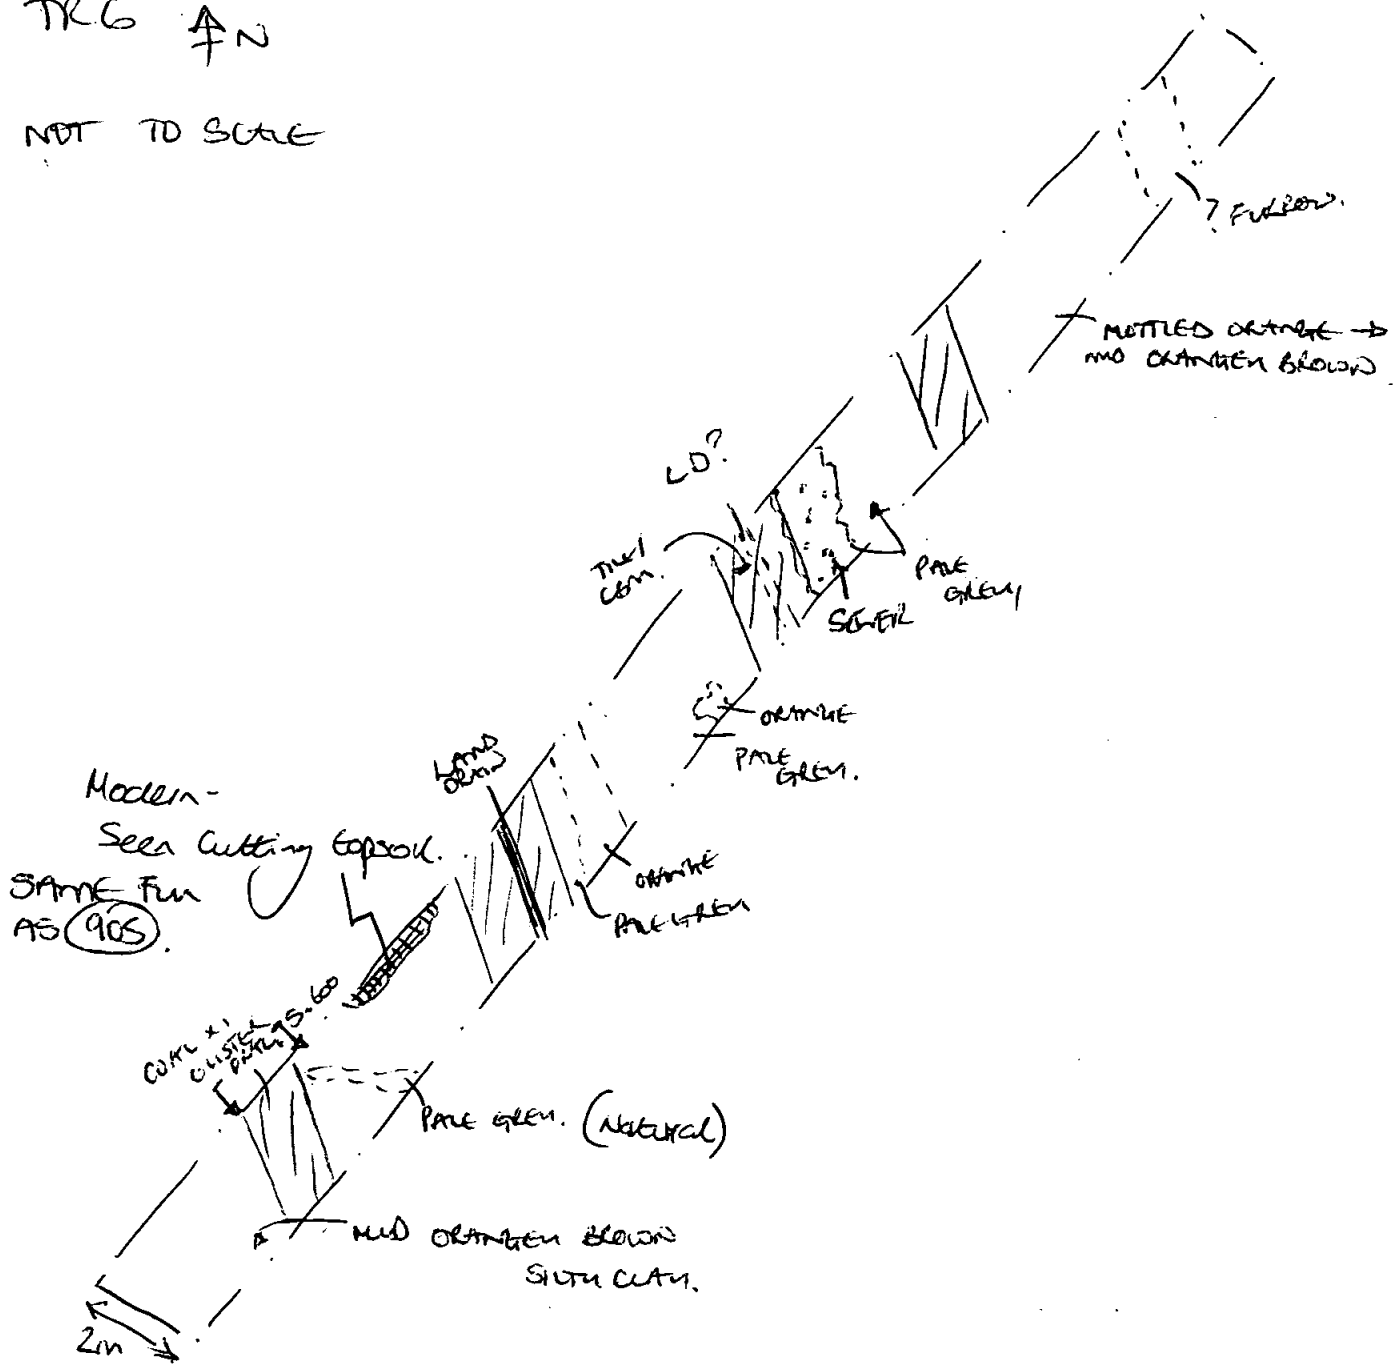 TR6 N
NOT TO SCALE
? FURROW.
MOTTLED ORANGE →
MID ORANGEY BROWN
LD?
TILE/
CBM.
PALE
GREY
SEWER
ORANGE
PALE
GREY.
LAND
DRAIN
Modern-
Seen Cutting topsoil.
SAME FILL
AS 905.
ORANGE
PALE GREY
COAL x1
PALE GREY. (Natural)
MID ORANGEY BROWN
SILTY CLAY.
2m